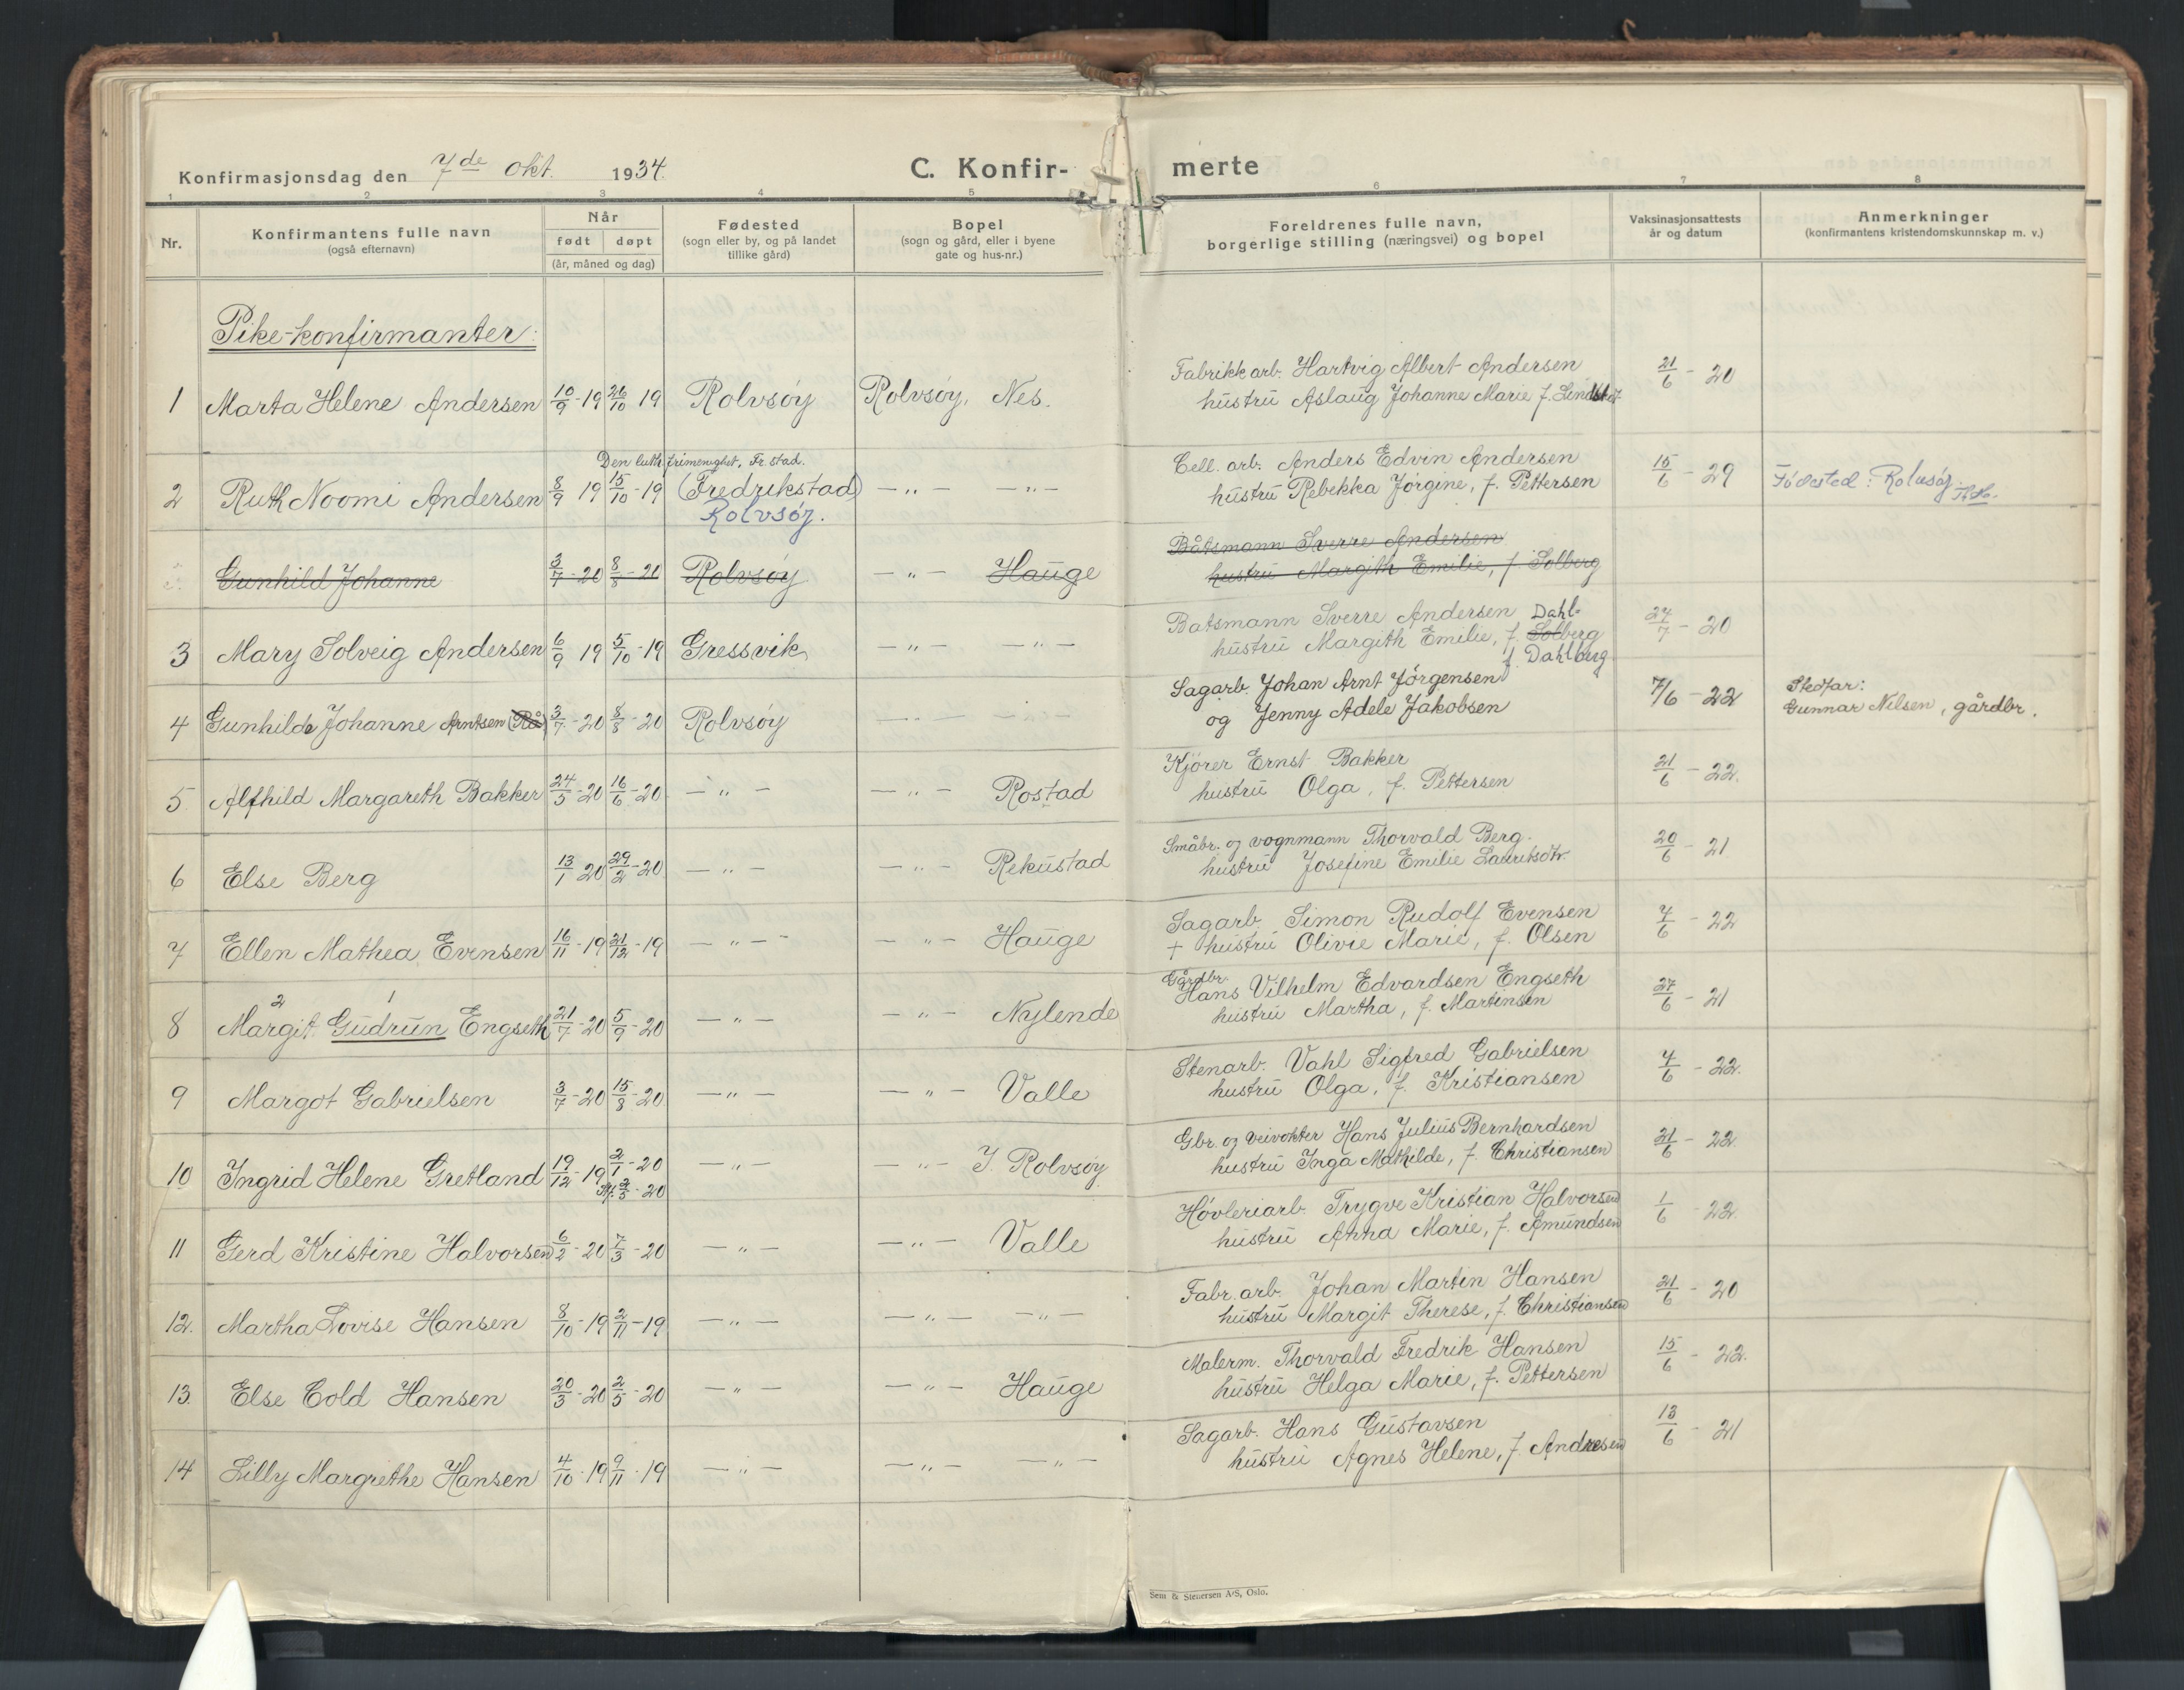 Konfirmasjonsdag den 7de okt. 1934.
C. Konfir-merte
1 2 3 4 5 6 7 8
Nr.
Konfirmantens fulle navn
(også efternavn)
Når
født døpt
(år, måned og dag)
Fødested
(sogn eller by, og på landet
tillike gård)
Bopel
(sogn og gård, eller i byene
gate og hus-nr.)
Foreldrenes fulle navn,
borgerlige stilling (næringsvei) og bopel
Vaksinasjonsattests
år og datum
Anmerkninger
(konfirmantens kristendomskunnskap m. v.)
Pike-konfirmanter:
1 Marta Helene Andersen 10/9-19 26/10 19 Rolvsøy Rolvsøy, Nes.
Fabrikkarb. Hartvig Albert Andersen
hustru Aslaug Johanne Marie f.
21/6 - 20
Den luth. frimenighet, Fr.stad.
2 Ruth Noomi Andersen 8/9 19 15/10-19 (Fredrikstad) — „ — — „ —
Rolvsøy.
Cell. arb. Anders Edvin Andersen
hustru Rebekka Jørgine, f. Pettersen
15/6 - 29 Fødested: Rolvsøy.
Gunhild Johanne 3/7-20 8/8-20 Rolvsøy — „ — Hauge
Båtsmann Sverre Andersen
hustru Margith Emilie, f. Solberg
3 Mary Solveig Andersen 6/9 19 5/10-19 Gressvik — „ — — „ —
Batsmann Sverre Andersen Dahl-
hustru Margith Emilie, f. Solberg
f. Dahlberg
24/7 - 20
4 Gunhilde Johanne Arntsen (Rå) 3/7-20 8/8-20 Rolvsøy — „ — — „ —
Sagarb. Johan Arnt Jørgensen
og Jenny Adele Jakobsen
7/6 - 22
Stedfar:
Gunnar Nilsen, gårdbr.
5. Alfhild Margareth Bakker 24/5-20 16/6-20 — „ — — „ — Rostad
Kjører Ernst Bakker
hustru Olga, f. Pettersen
21/6 - 22.
6 Else Berg 13/1 20 29/2-20 — „ — — „ — Rekustad
Småbr. og vognmann Thorvald Berg.
hustru Josefine Emilie Lauritsdtr.
20/6 - 21
7 Ellen Mathea Evensen 16/11-19 21/12-19 — „ — — „ — Hauge
Sagarb. Simon Rudolf Evensen
+ hustru Olivie Marie, f. Olsen
7/6 - 22
2 1
8 Margit Gudrun Engseth 21/7-20 5/9-20 — „ — — „ — Nylende
Gårdbr.
Hans Vilhelm Edvardsen Engseth
hustru Martha, f. Martinsen
27/6 - 21
9 Margot Gabrielsen 3/7-20 15/8-20 — „ — — „ — Valle
Stenarb. Vahl Sigfred Gabrielsen
hustru Olga, f. Kristiansen
7/6 - 22.
10 Ingrid Helene Gretland 19/12-19 2/1-20 — „ — — „ — I. Rolvsøy
2/3-20
Gbr. og veivokter Hans Julius Bernhardsen
hustru Inga Mathilde, f. Christiansen
21/6 - 22
11 Gerd Kristine Halvorsen 6/2-20 7/3-20 — „ — — „ — Valle
Høvleriarb. Trygve Kristian Halvorsen
hustru Anna Marie, f. Amundsen
1/6 22
12. Martha Lovise Hansen 8/10-19 2/11-19 — „ — — „ — — „ —
Fabr. arb. Johan Martin Hansen
hustru Margit Therese, f. Christiansen
21/6 - 20
13. Else Cold Hansen 20/3-20 2/5-20 — „ — — „ — Hauge
Malerm. Thorvald Fredrik Hansen
hustru Helga Marie, f. Pettersen
15/6 - 22.
14 Lilly Margrethe Hansen 4/10-19 9/11-19 — „ — — „ — — „ —
Sagarb. Hans Gustavsen
hustru Agnes Helene, f. Andresen
13/6 - 21
Sem & Stenersen A/S, Oslo.